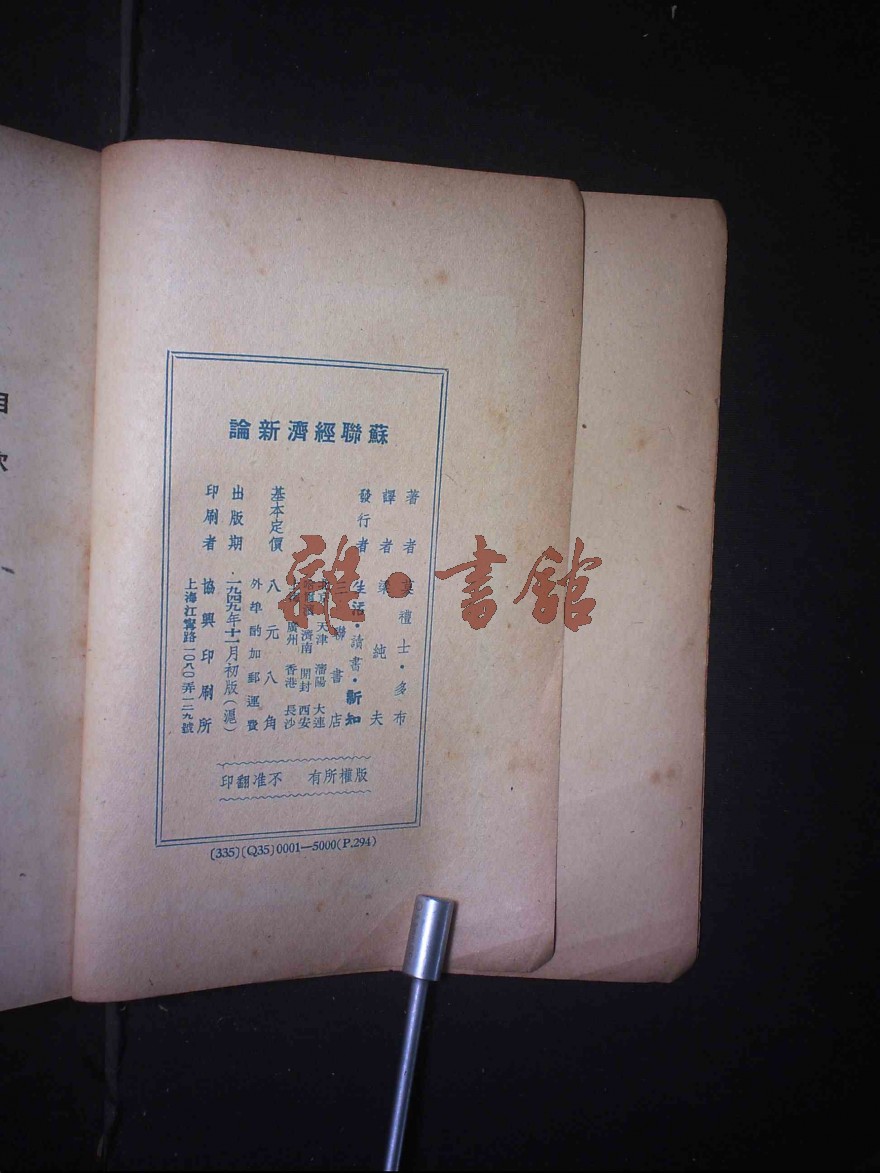 蘇聯經濟新論
著者 莫禮士・多布
譯者 梁純夫
發行者 生活・讀書・新知
三聯書店
天津 瀋陽 大連
濟南 開封 西安
廣州 香港 長沙
基本定價 八元八角
外埠酌加郵運費
出版期 一九四九年十一月初版(滬)
印刷者 協興印刷所
上海江寧路一〇八〇弄一二九號
版權所有 不准翻印
(335)(Q35)0001—5000(P.294)
雜・書館
目次